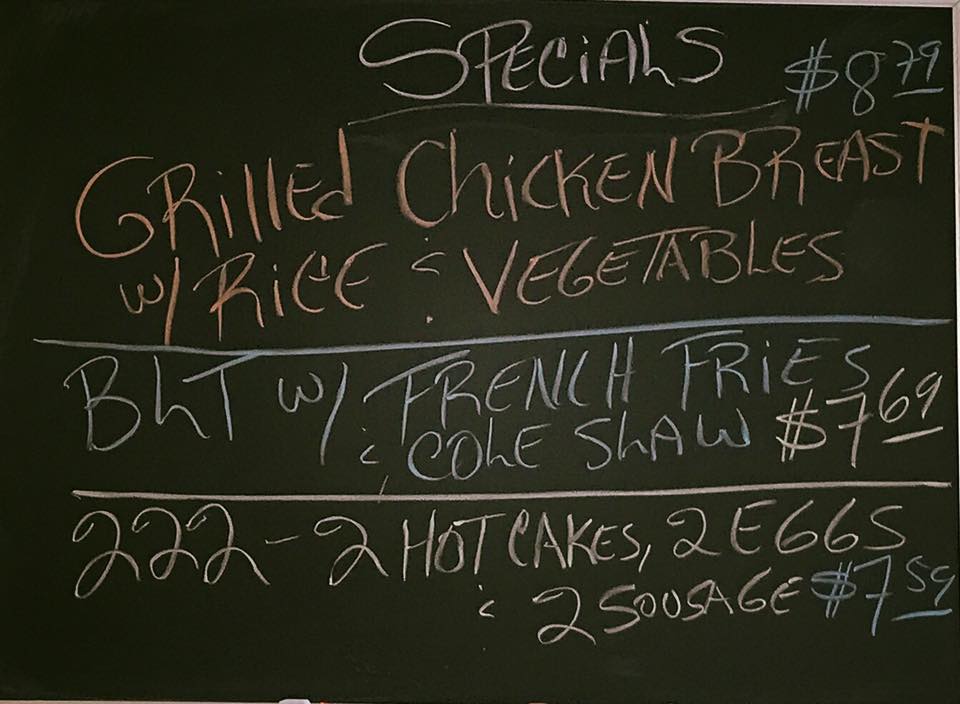 SPECiALS $8 79
GRillEd ChiCKEN BREAST
w/ RiCE & VEGETABLES
BLT w/ FRENCH FRiES
& COLE SLAW $7 69
222 - 2 HOT CAKES, 2 EGGS
& 2 SOUSAGE $7 59